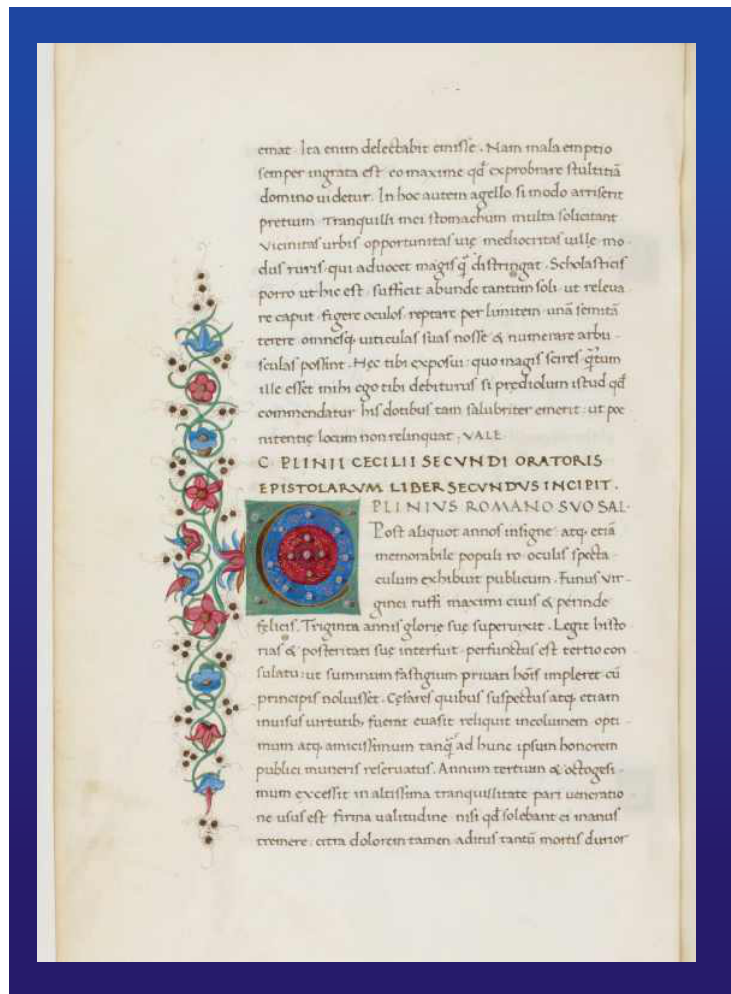 emat. Ita enim delectabit emisse. Nam mala emptio
semper ingrata est eo maxime qđ exprobrare stultitiā
domino uidetur. In hoc autem agello si modo arriserit
pretium Tranquilli mei stomachum multa solicitant
Vicinitas urbis opportunitas uię mediocritas uille mo-
dus ruris qui aduocet magis q̃ distringat. Scholasticis
porro ut hic est sufficit abunde tantum soli ut releua
re caput figere oculos reptare per limitem unā semitā
terere omnesq; uiticulas suas nosse & numerare arbu-
sculas possint. Hęc tibi exposui quo magis scires q̃tum
ille esset mihi ego tibi debiturus si prędiolum istud qđ
commendatur his dotibus tam salubriter emerit ut poe
nitentię locum non relinquat. VALE
C PLINII CECILII SECVNDI ORATORIS
EPISTOLARVM LIBER SECVNDVS INCIPIT.
PLINIVS ROMANO SVO SAL.
Post aliquot annos insigne atq; etiā
memorabile populi ro. oculis specta
culum exhibuit publicum. Funus Vir-
ginei ruffi maximi ciuis & perinde
felicis. Triginta annis glorię suę superuixit. Legit histo
rias & posteritati suę interfuit perfunctus est tertio con
sulatu: ut summum fastigium priuati hoīs impleret cū
principis noluisset. Cęsares quibus suspectus atq; etiam
inuisus uirtutib; fuerat euasit reliquit incolumem opti-
mum atq; amicissimum tanq̃ ad hunc ipsum honorem
publici muneris reseruatus. Annum tertium & octogesi-
mum excessit in altissima tranquillitate pari ueneratio
ne usus est firma ualitudine nisi qđ solebant ei manus
tremere citra dolorem tamen aditus tantū mortis durior